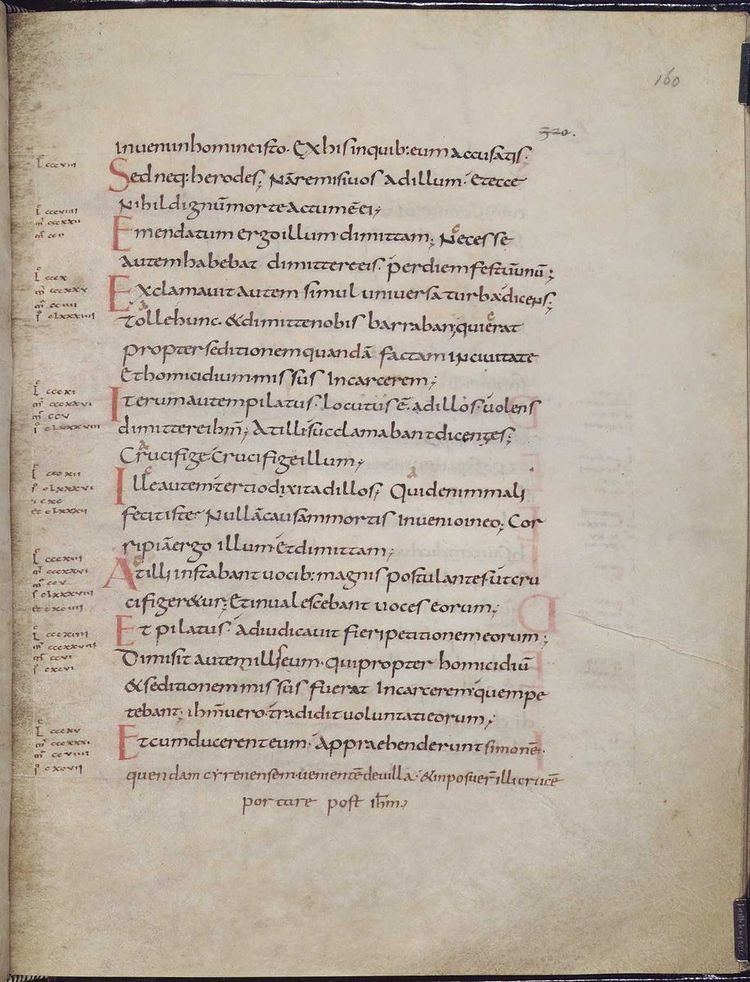 160
320.
inuenioinhomineisto. Exhisinquib:eumaccusatis.
Sedneq:herodes; Nāremisiuos adillum. Etecce
Nihildignūmorteactumēei;
Emendatum ergoillum dimittam; Necesse
autemhabebat dimittereeis. perdiemfestūunū;
Exclamauitautem simul uniuersa turbadicens;
Tollehunc. &dimittenobis barraban; quierat
propterseditionemquandā factam inciuitate
Ethomicidiummissus Incarcerem;
Iterumautempilatus locutus ē adillos. uolens
dimittereihm̄; Atillisucclamabantdicentes;
Crucifige Crucifigeillum;
Illeautemtertiodixitadillos; Quidenimmali
fecitiste; Nullācausammortis inuenioineo; Cor
ripiāergo illum Etdimittam;
Atilli instabantuocib:magnis postulantesutcru
cifiger&ur; Etinualescebant uoces eorum;
Et pilatus adiudicauit fieripetitionemeorum;
Dimisit autemilliseum. quipropter homicidiū
&seditionemmissus fuerat Incarcerem quempe
tebant; ihm̄uero tradidituoluntatieorum;
Etcumducerenteum. Appraehenderuntsimonē
quendamcyrenensem uenientēdeuilla. &imposuer̄illicrucē
portare post ihm̄;